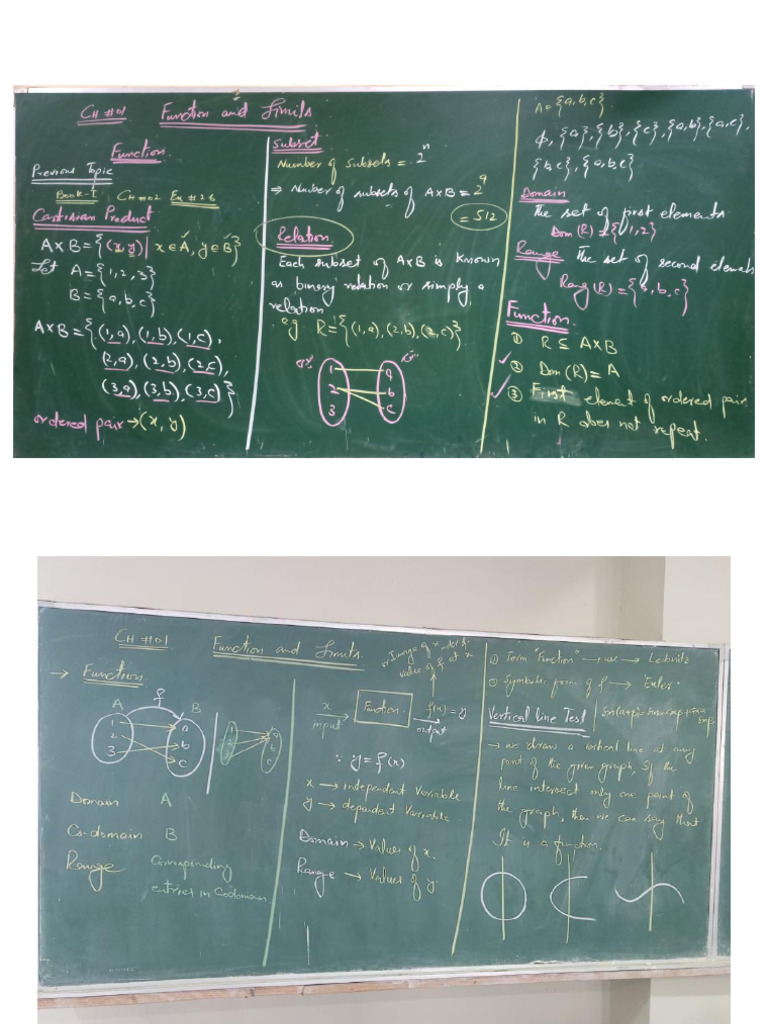 CH #01 Function and Limits
Function
Previous Topic
Book-I CH #02 Ex # 2.6
Cartisian Product
A×B = {(x, y) | x ∈ A, y ∈ B}
Let A = {1, 2, 3}
B = {a, b, c}
A×B = {(1, a), (1, b), (1, c),
(2, a), (2, b), (2, c),
(3, a), (3, b), (3, c)}
ordered pair → (x, y)
Subset
Number of subsets = 2^n
⇒ Number of subsets of A×B = 2^9
= 512
Relation
Each subset of A×B is known
as binary relation or simply a
relation
e.g R = {(1, a), (2, b), (2, c)}
1 a
2 b
3 c
A = {a, b, c}
ϕ, {a}, {b}, {c}, {a, b}, {a, c},
{b, c}, {a, b, c}
Domain
The set of first elements
Dom (R) = {1, 2}
Range The set of second elements
Rang (R) = {a, b, c}
Function
① R ⊆ A×B
② Dom (R) = A
③ First element of ordered pair
in R does not repeat.
CH #01 Function and Limits.
→ Function
f
A B
1 a
2 b
3 c
Domain A
Co-domain B
Range Corresponding
entries in Codomain.
or Image of x
Value of f at x
x input Function f(x) = y output
∵ y = f(x)
x → independent Variable
y → dependent Variable.
Domain → Values of x.
Range → Values of y.
① Term "Function" → use → Leibnitz
② Symbolic form of f → Euler.
Vertical line Test
→ we draw a vertical line at any
point of the given graph, if the
line intersect only one point of
the graph, then we can say that
It is a function.